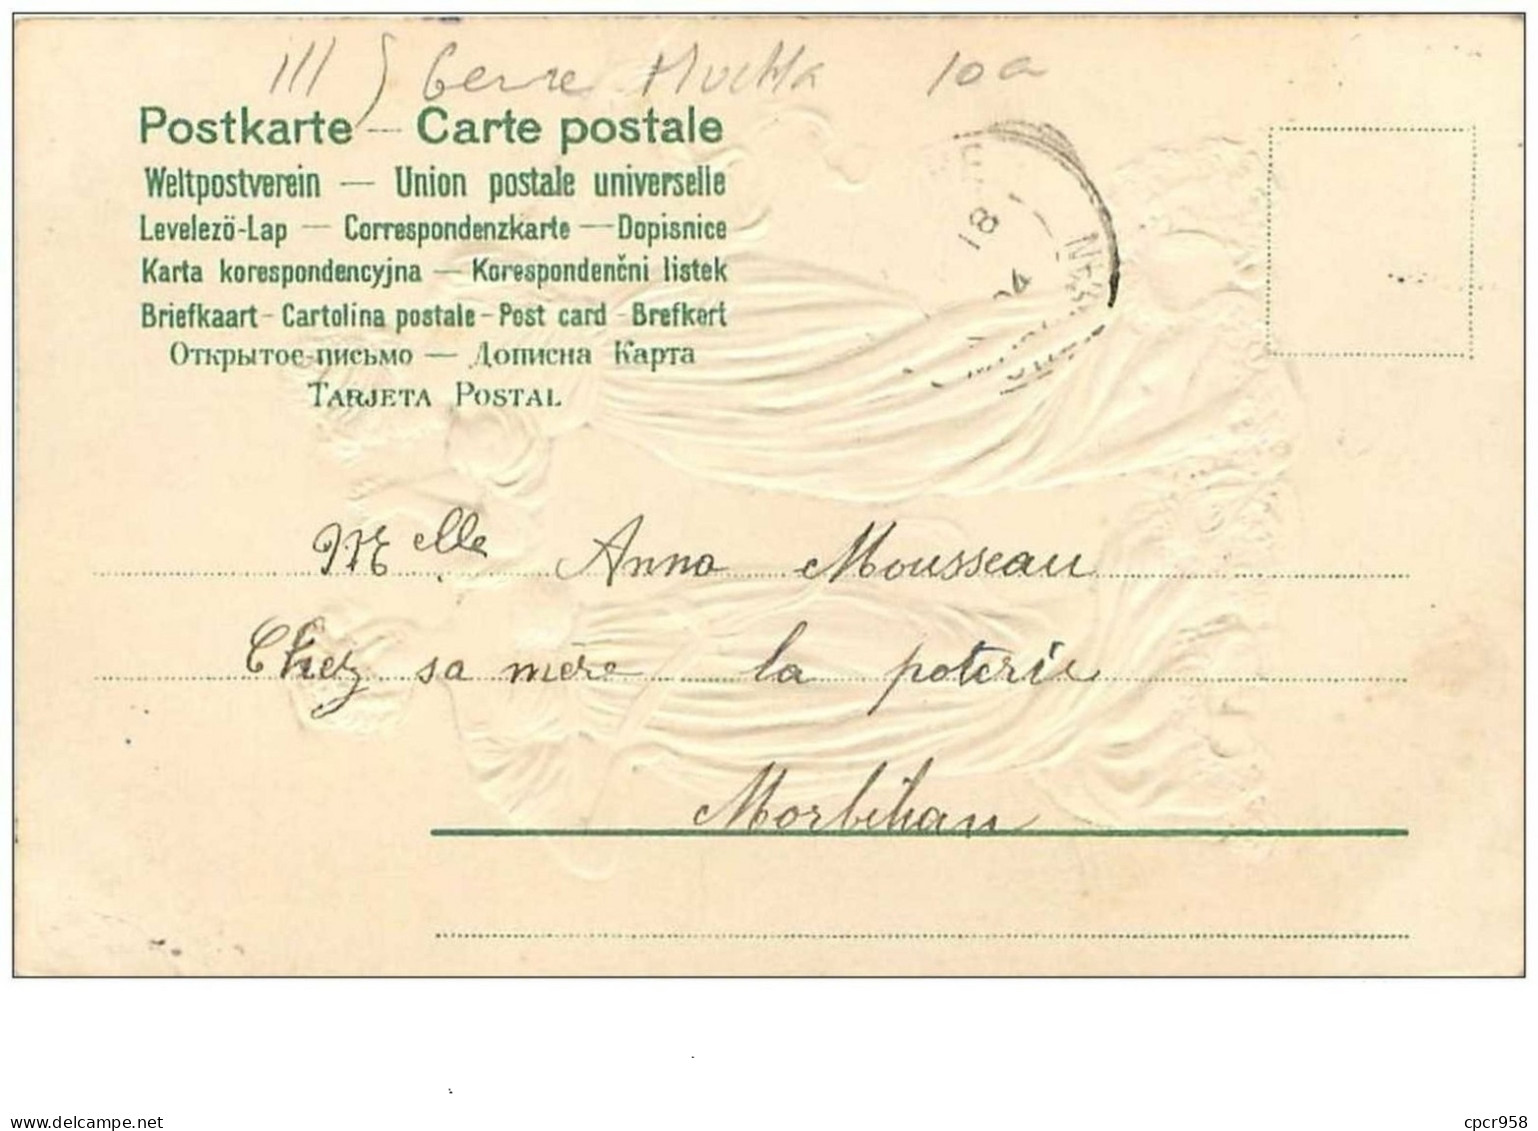 III) Genre Mucha 10a
Postkarte — Carte postale
Weltpostverein — Union postale universelle
Levelező-Lap — Correspondenzkarte — Dopisnice
Karta korespondencyjna — Korespondenčni listek
Briefkaart - Cartolina postale - Post card - Brefkort
Открытое-письмо — Дописна Карта
TARJETA POSTAL
18
04
Melle Anna Mousseau
Chez sa mère la poterie
Morbihan
cpcr958